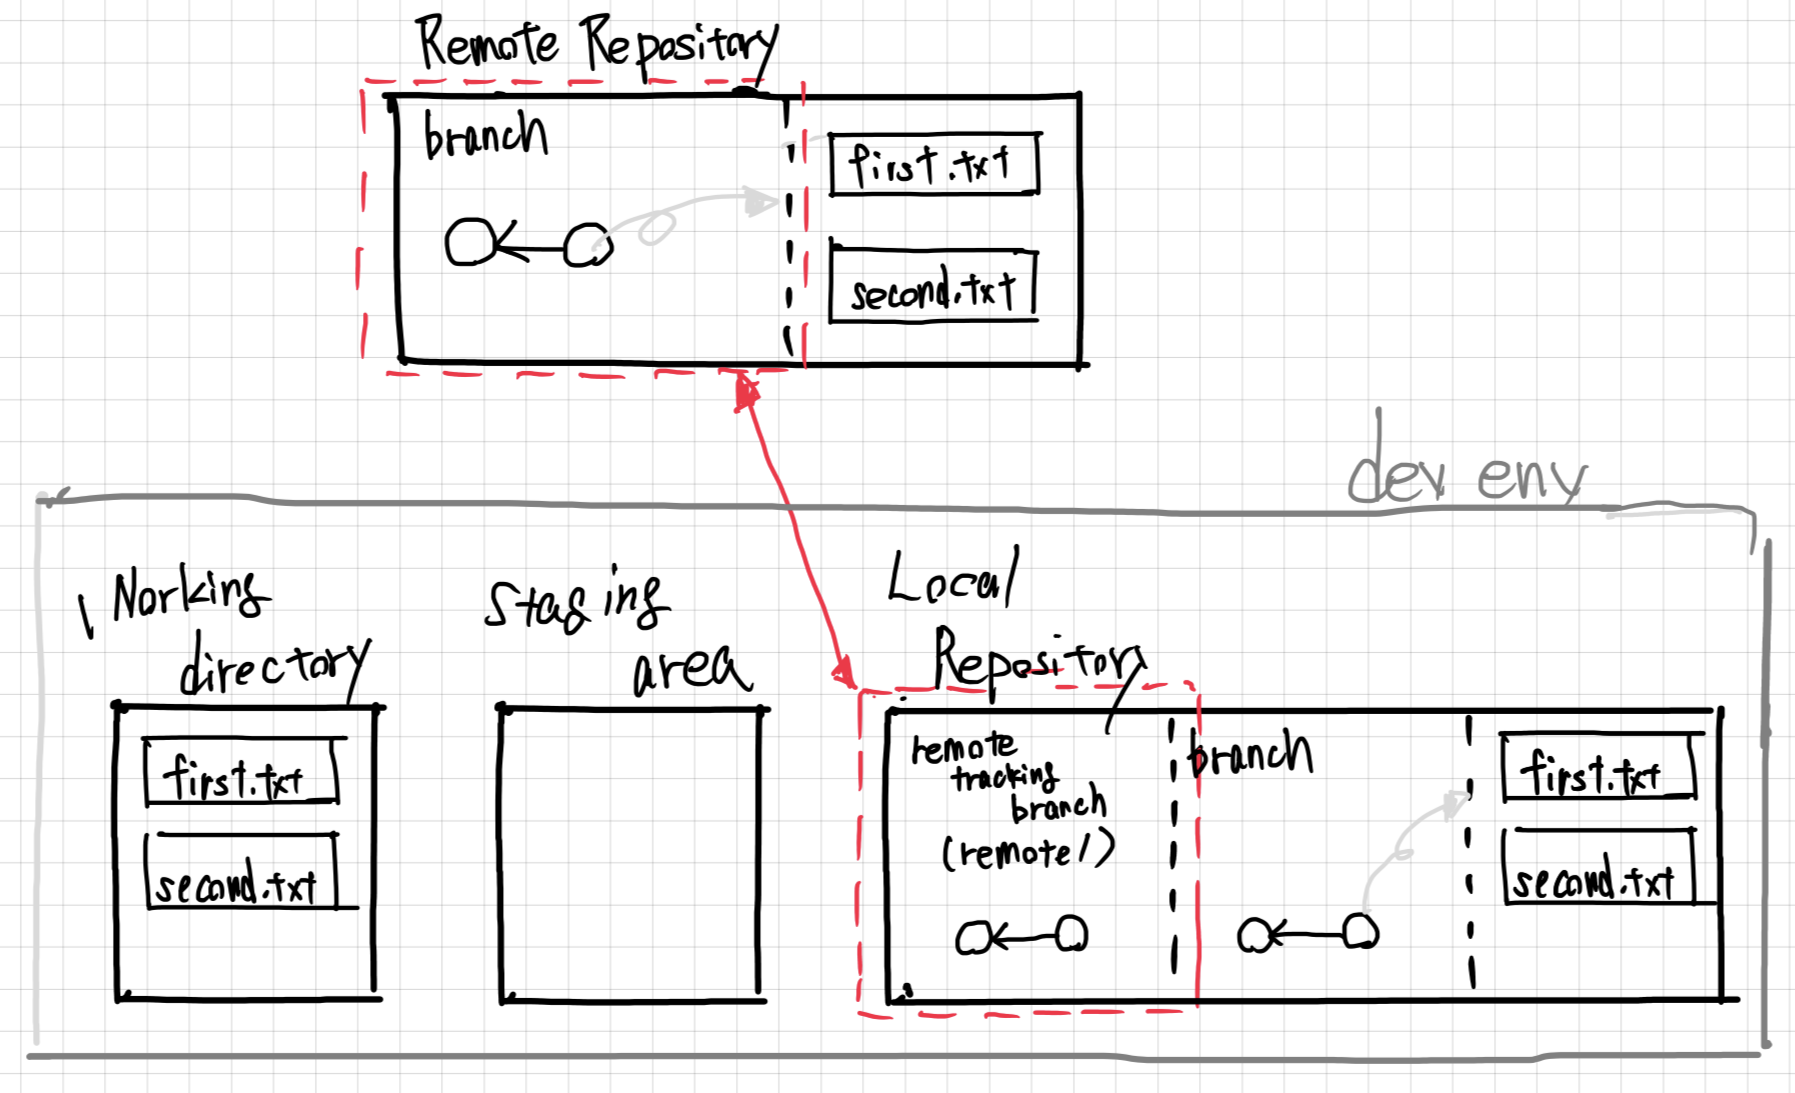 Remote Repository
branch
first.txt
second.txt
dev env
Working
directory
first.txt
second.txt
Staging
area
Local
Repository
remote
tracking
branch
(remote/)
branch
first.txt
second.txt